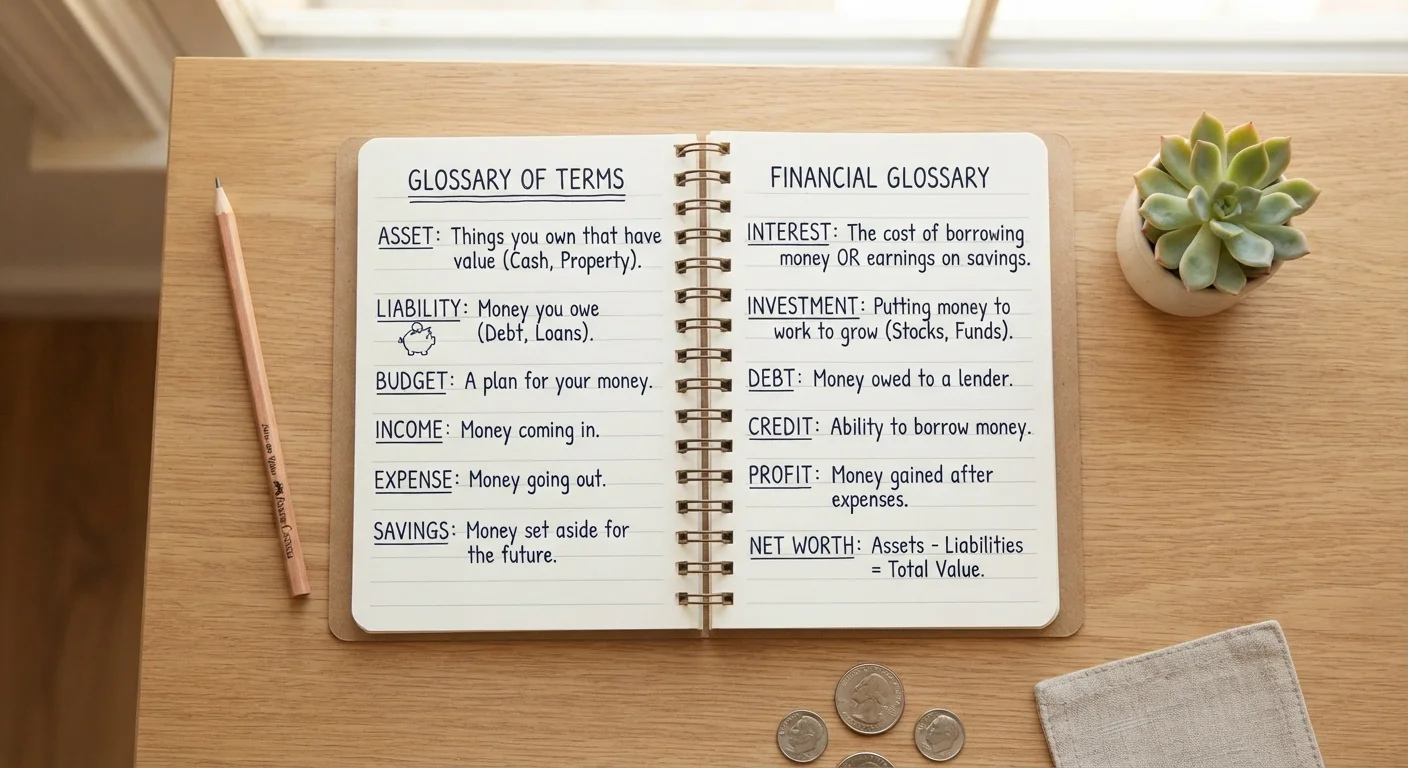 GLOSSARY OF TERMS
ASSET: Things you own that have
value (Cash, Property).
LIABILITY: Money you owe
(Debt, Loans).
BUDGET: A plan for your money.
INCOME: Money coming in.
EXPENSE: Money going out.
SAVINGS: Money set aside for
the future.
FINANCIAL GLOSSARY
INTEREST: The cost of borrowing
money OR earnings on savings.
INVESTMENT: Putting money to
work to grow (Stocks, Funds).
DEBT: Money owed to a lender.
CREDIT: Ability to borrow money.
PROFIT: Money gained after
expenses.
NET WORTH: Assets - Liabilities
= Total Value.